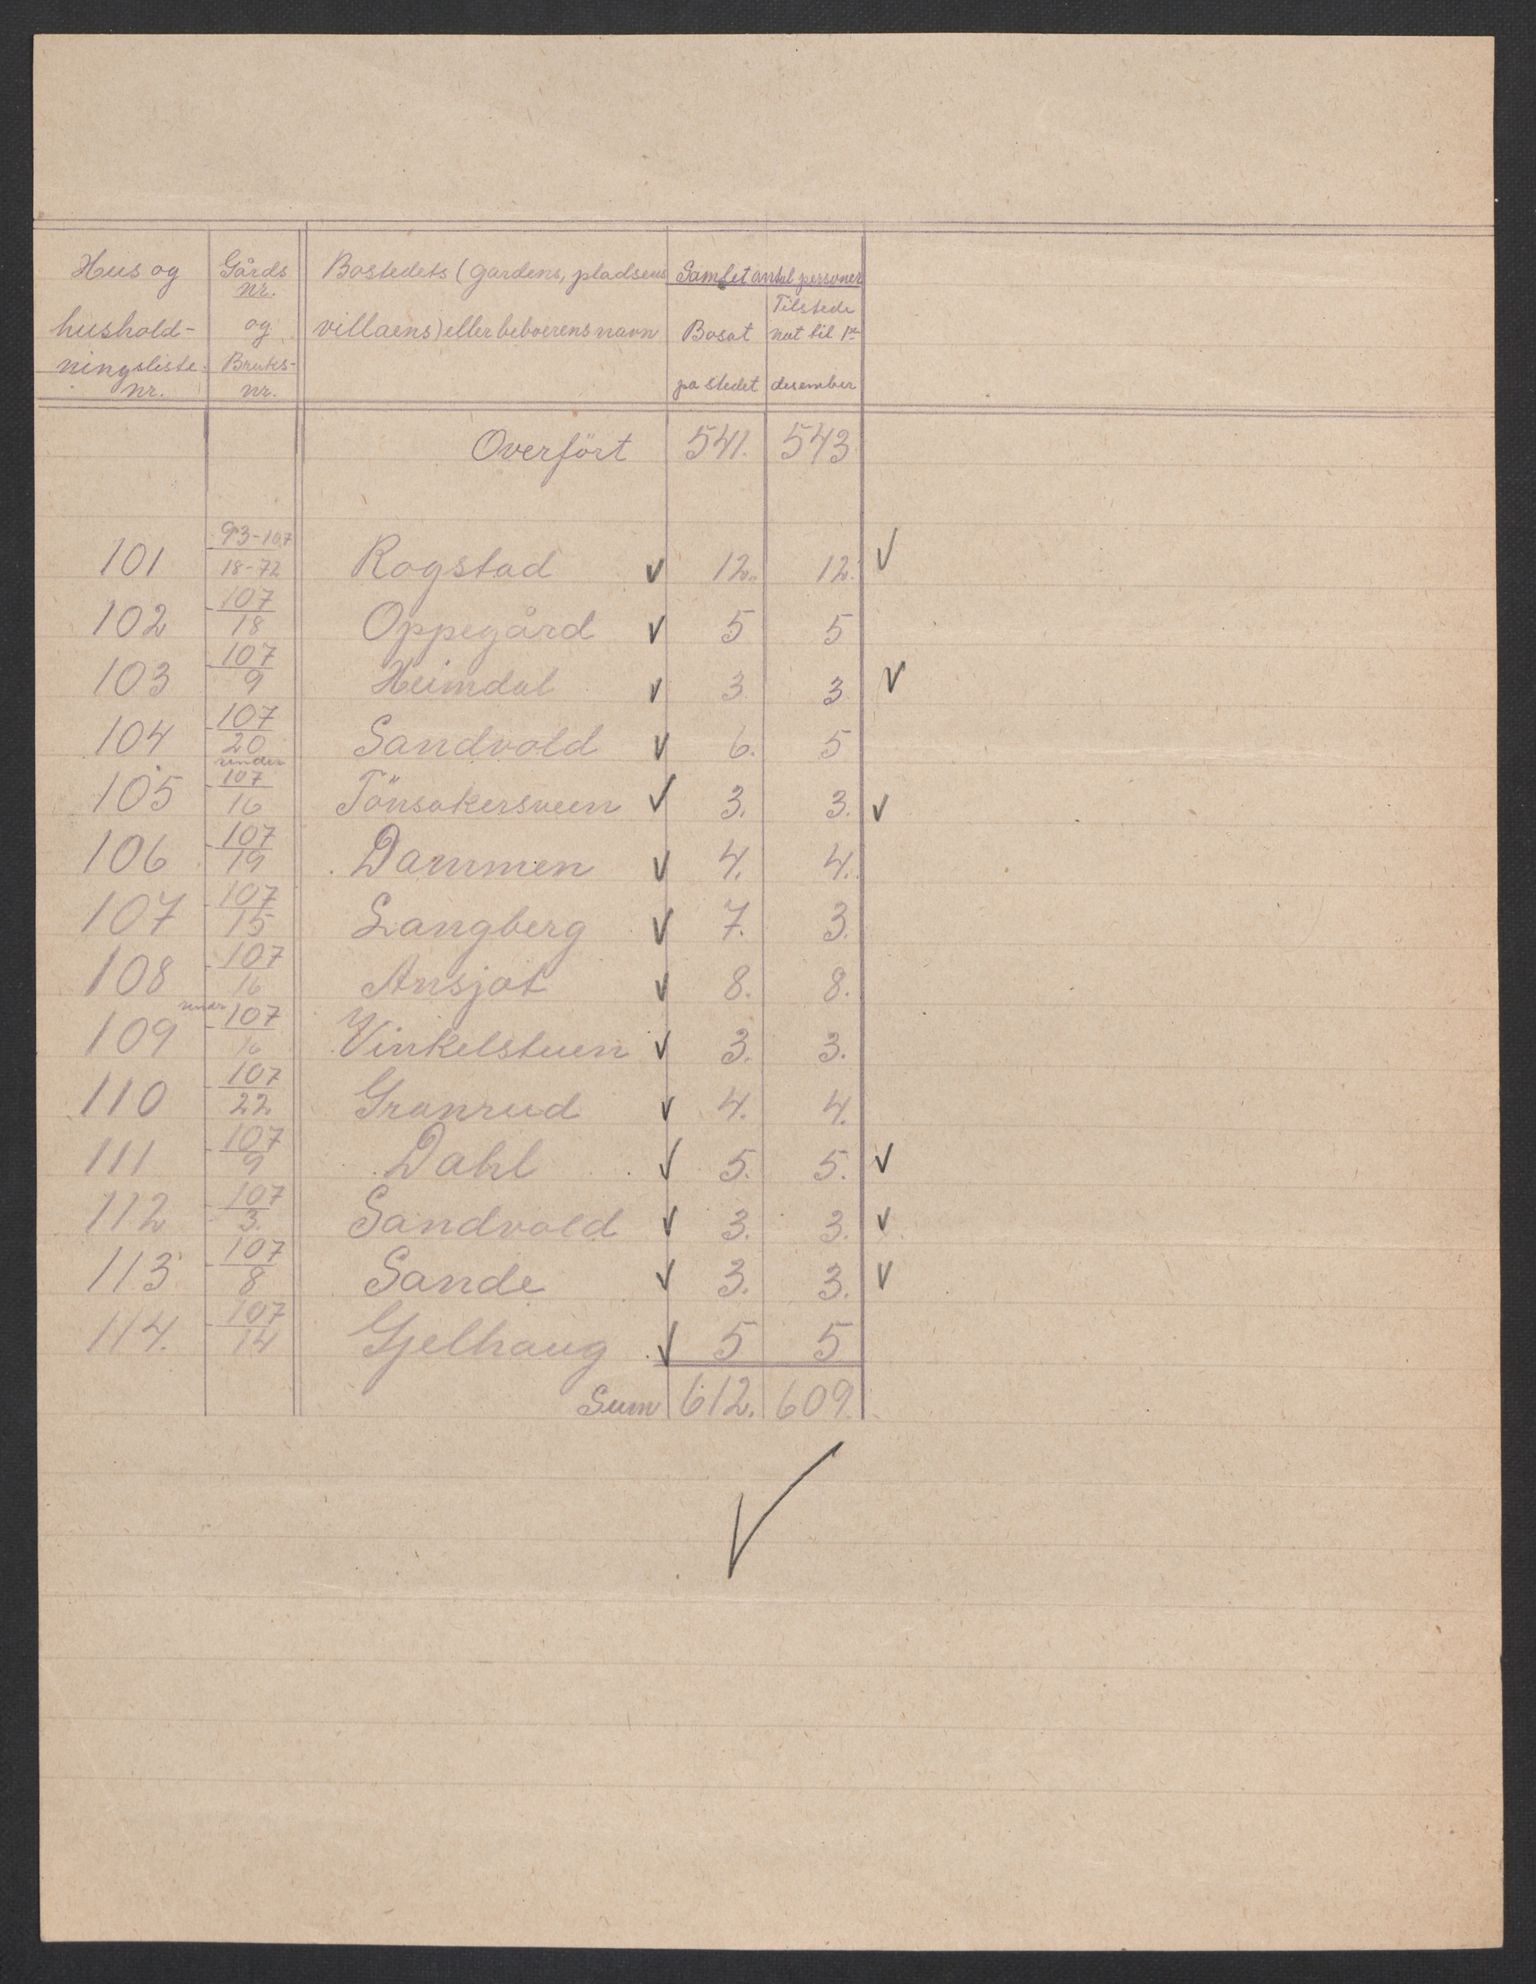 Hus og hushold-ningsliste nr. | Gårds nr. og Bruks-nr. | Bostedets (gardens, pladsens villaens) eller beboerens navn | Samlet antal personer
Bosat på stedet | Tilstede nat til 1ste desember
Overført 541. 543
101 93-107/18-72 Rogstad ✓ 12. 12. ✓
102 107/18 Oppegård ✓ 5 5
103 107/9 Heimdal ✓ 3 3 ✓
104 107/20 Sandvold ✓ 6. 5
105 under 107/16 Tönsakersveen ✓ 3. 3. ✓
106 107/19 Dammen ✓ 4. 4.
107 107/15 Langberg ✓ 7. 3.
108 107/16 Ansjøt ✓ 8. 8.
109 under 107/16 Vinkelstuen ✓ 3. 3.
110 107/22 Granrud ✓ 4. 4.
111 107/9 Dahl ✓ 5. 5. ✓
112 107/3. Sandvold ✓ 3. 3. ✓
113 107/8 Sande ✓ 3. 3. ✓
114. 107/14 Gjelhaug ✓ 5 5
Sum 612. 609.
✓